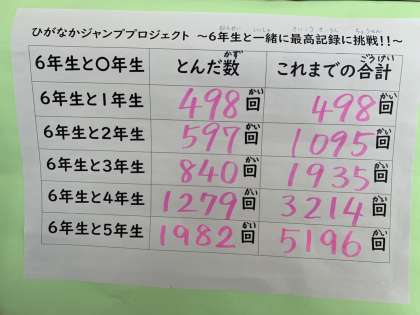 ひがなかジャンププロジェクト ～6年生と一緒に最高記録に挑戦!!～
6年生と〇年生 とんだ数 これまでの合計
6年生と1年生 498回 498回
6年生と2年生 597回 1095回
6年生と3年生 840回 1935回
6年生と4年生 1279回 3214回
6年生と5年生 1982回 5196回